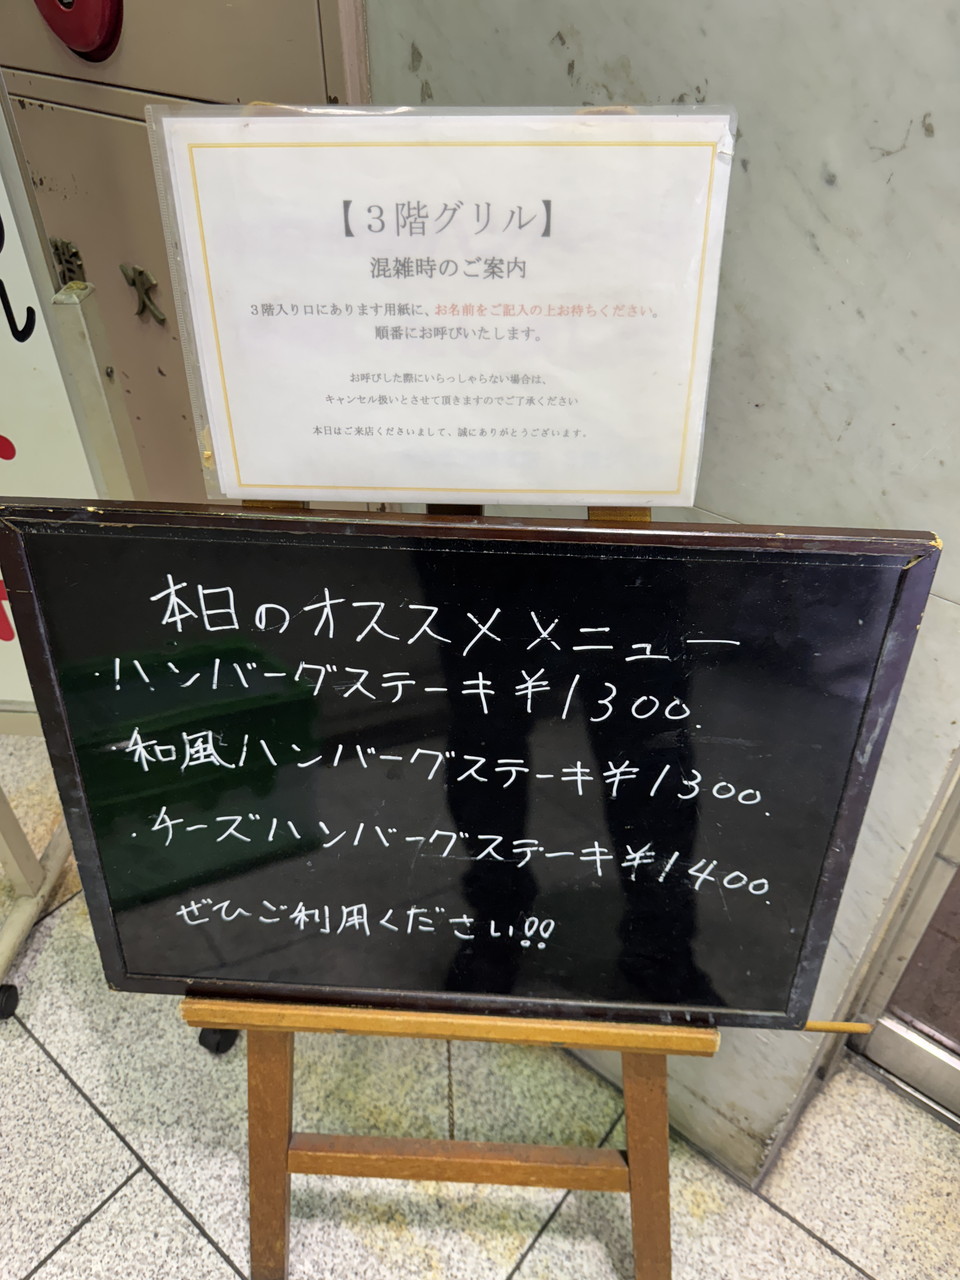 【3階グリル】
混雑時のご案内
3階入り口にあります用紙に、お名前をご記入の上お待ちください。
順番にお呼びいたします。
お呼びした際にいらっしゃらない場合は、
キャンセル扱いとさせて頂きますのでご了承ください
本日はご来店くださいまして、誠にありがとうございます。
本日のオススメメニュー
・ハンバーグステーキ¥1300.
和風ハンバーグステーキ¥1300.
・チーズハンバーグステーキ¥1400.
ぜひご利用ください!!